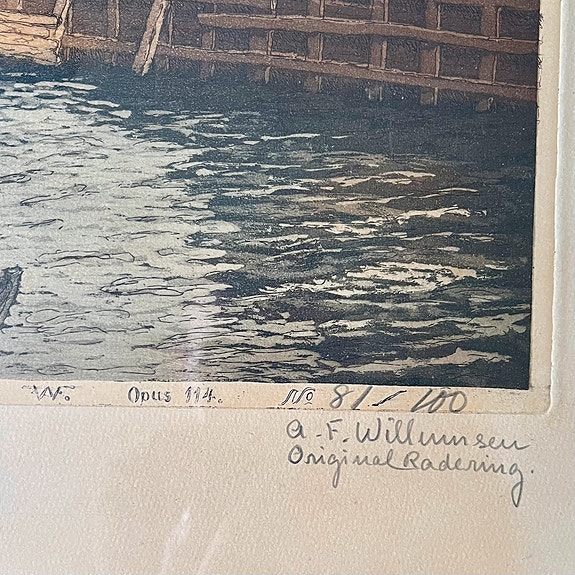 W. Opus 114. No 81/100
A.F. Willumsen
Original Radering.